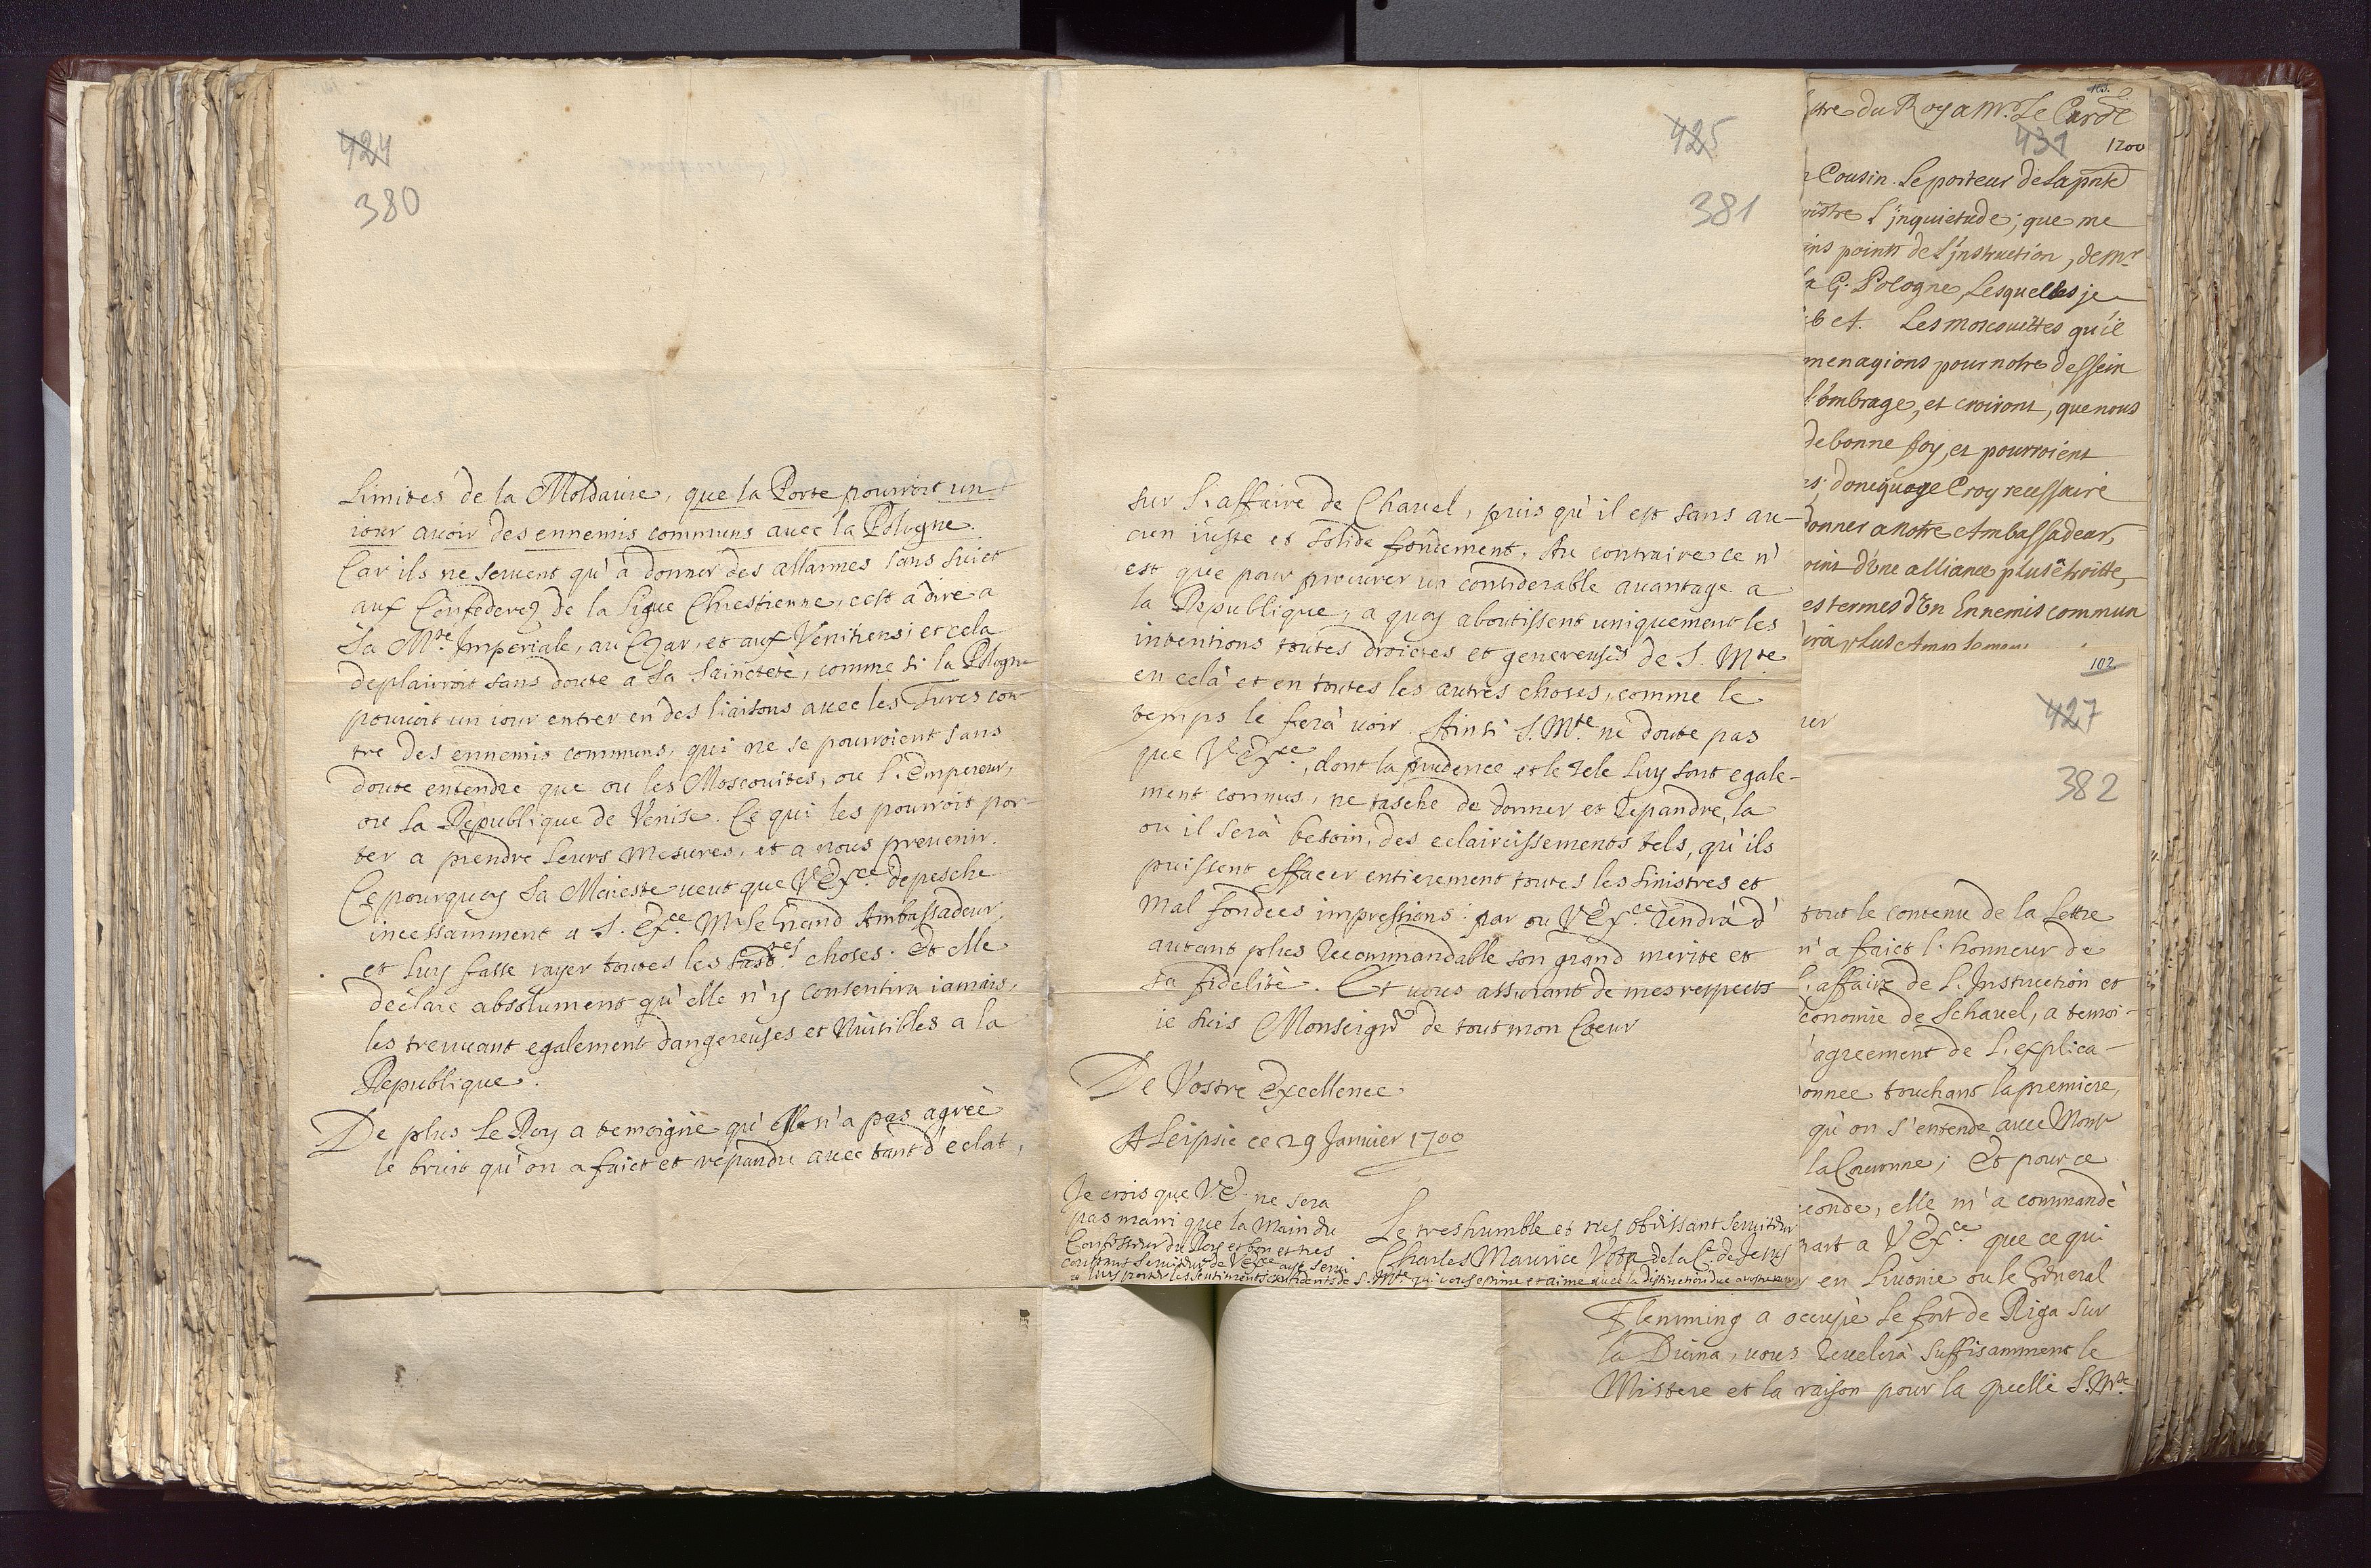 424
380
Limites de la Moldauie, que la Porte pourroit un
iour auoir des ennemis communs auec la Pologne.
Car ils ne seruent qu'à donner des allarmes sans suiet
aux Confederez de la Ligue Chrestienne, c'est à dire a
Sa Mté Imperiale, au Czar, et aux Venitiens; et cela
deplairoit sans doute a Sa Saincteté, comme si la Pologne
pouuoit un iour entrer en des liaisons auec les Turcs con-
tre des ennemis communs, qui ne se pourroient sans
doute entendre que ou les Moscouites, ou l'Empereur,
ou la Republique de Venise. Ce qui les pourroit por-
ter a prendre leurs mesures, et a nous preuenir.
Ce pourquoy Sa Maiesté ueut que V Exce depesche
incessamment a S. Exce Mr le Grand Ambassadeur,
et luy fasse rayer toutes les susdtes choses. Et elle
declare absolument qu'elle n'y consentira iamais,
les treuuant egalement dangereuses et nuisibles a la
Republique.
De plus le Roy a temoigné qu'elle n'a pas agreé
le bruit qu'on a faict et répandu auec tant d'eclat,
425
381
sur l'affaire de Chauel, puis qu'il est sans au-
cun iuste et solide fondement. Au contraire ce n'
est que pour procurer un considerable auantage a
la Republique; a quoy aboutissent uniquement les
intentions toutes droictes et genereuses de S. Mté
en celà et en toutes les autres choses, comme le
temps le ferà uoir. Ainsi S. Mté ne doute pas
que V Exce, dont la prudence et le zele luy sont egale-
ment connus, ne tasche de donner et repandre, la
ou il serà besoin, des eclaircissements tels, qu'ils
puissent effacer entierement toutes les sinistres et
mal fondees impressions: par ou V Exce rendrà d'
autant plus recommandable son grand merite et
sa fidelité. Et uous assurant de mes respects
ie suis Monseigr de tout mon Coeur
De Vostre Excellence
A Leipsic ce 29 Janvier 1700
Je crois que V.E. ne sera
pas marri que la main du
Confesseur du Roy et bon et tres
constant seruiteur de V Exce aye serui
a luy porter les sentiments de S. Mté qui uous estime et aime auec la distinction due
Le tres humble et tres obeissant seruiteur
Charles Maurice Vota de la C. de Jesus
103.
ttre du Roy a Mr. Le Carde
431
1700
Cousin. Le porteur de la pnte
oistre l'jnquietude; que me
ins points de l'jnstruction, de Mr
a G. Pologne, Lesquelles je
b et. Les moscouittes qu'il
menagions pour notre dessein
l'ombrage, et croiront, que nous
de bonne foy, et pourroient
es; doncque je Croy necessaire
donner a notre Ambassadeur,
oint d'Une alliance plus étroitte,
es termes d'Un Ennemis commun
102
427
382
tout le contenu de la Lettre
n'a faict l'honneur de
l'affaire de l'Instruction et
conomie de Schauel, a temoi-
agreement de l'explica-
onnee touchant la premiere,
qu'on s'entende auec Monsr
la Couronne; Et pour ce
conde, elle m'a commandé
part a V Exce que ce qui
en Liuonie ou le General
Flemming a occupé le fort de Riga sur
la Duina, uous reuelerà suffisamment le
Mistere et la raison pour la quelle S. Mté